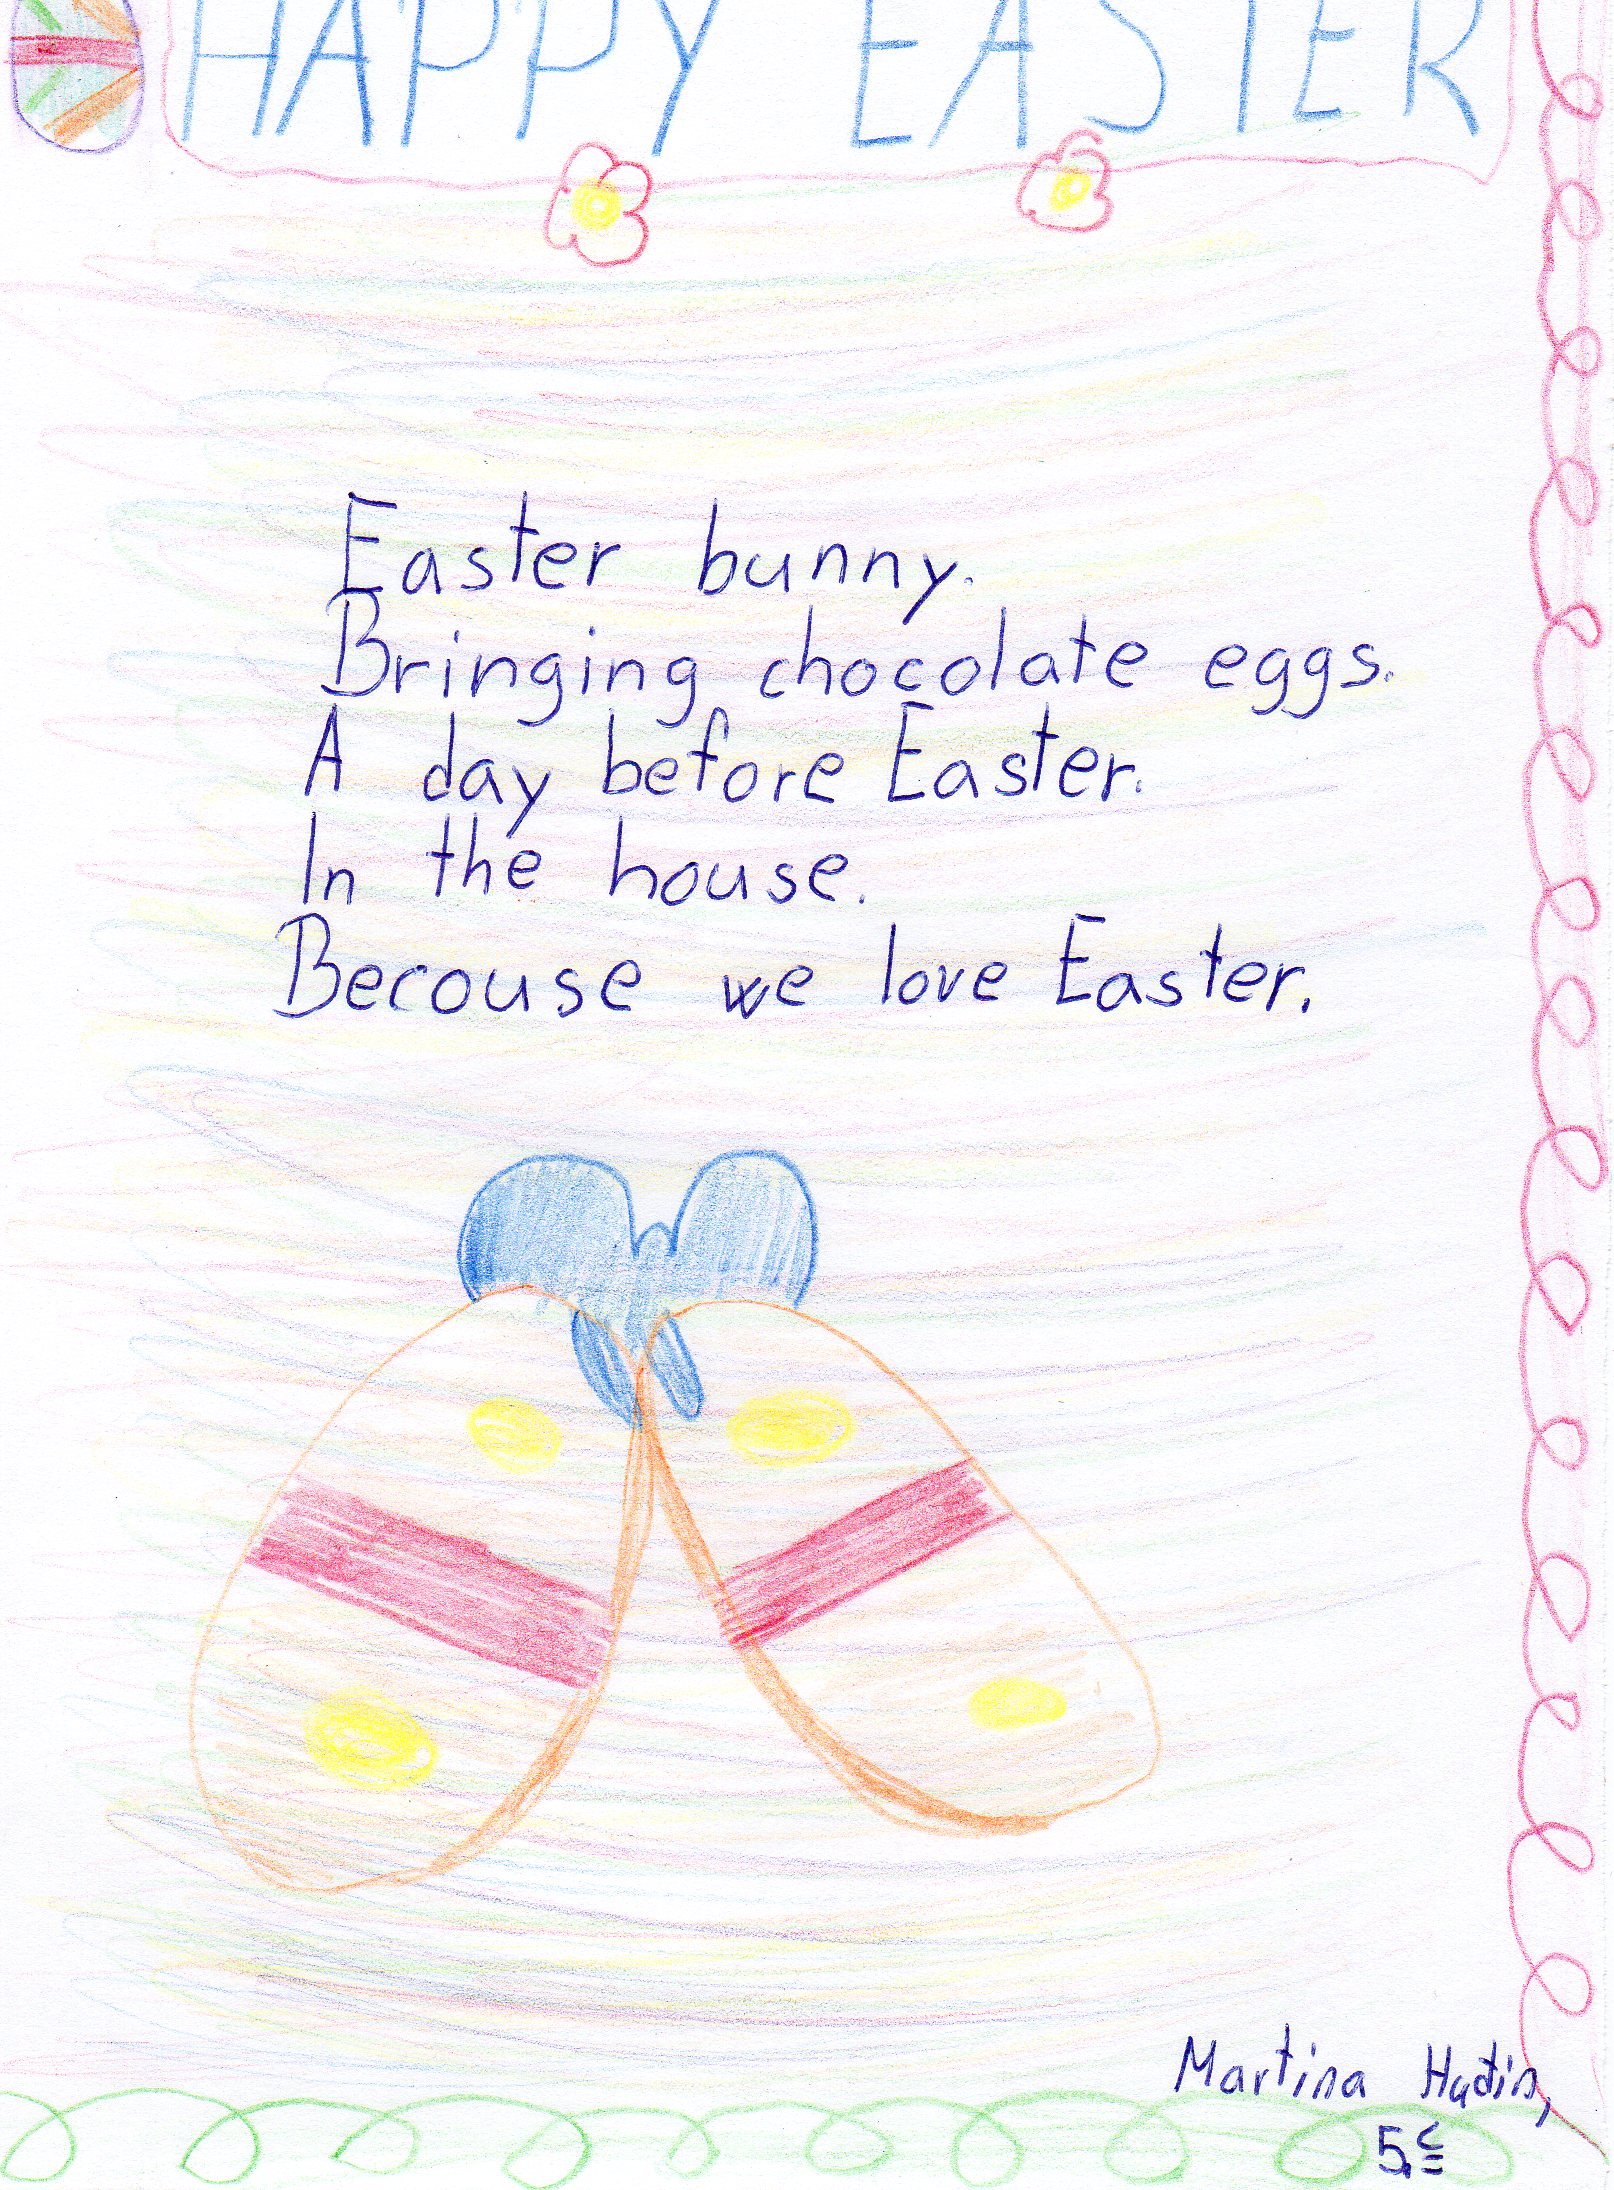 HAPPY EASTER
Easter bunny.
Bringing chocolate eggs.
A day before Easter.
In the house.
Becouse we love Easter.
Martina
5.c